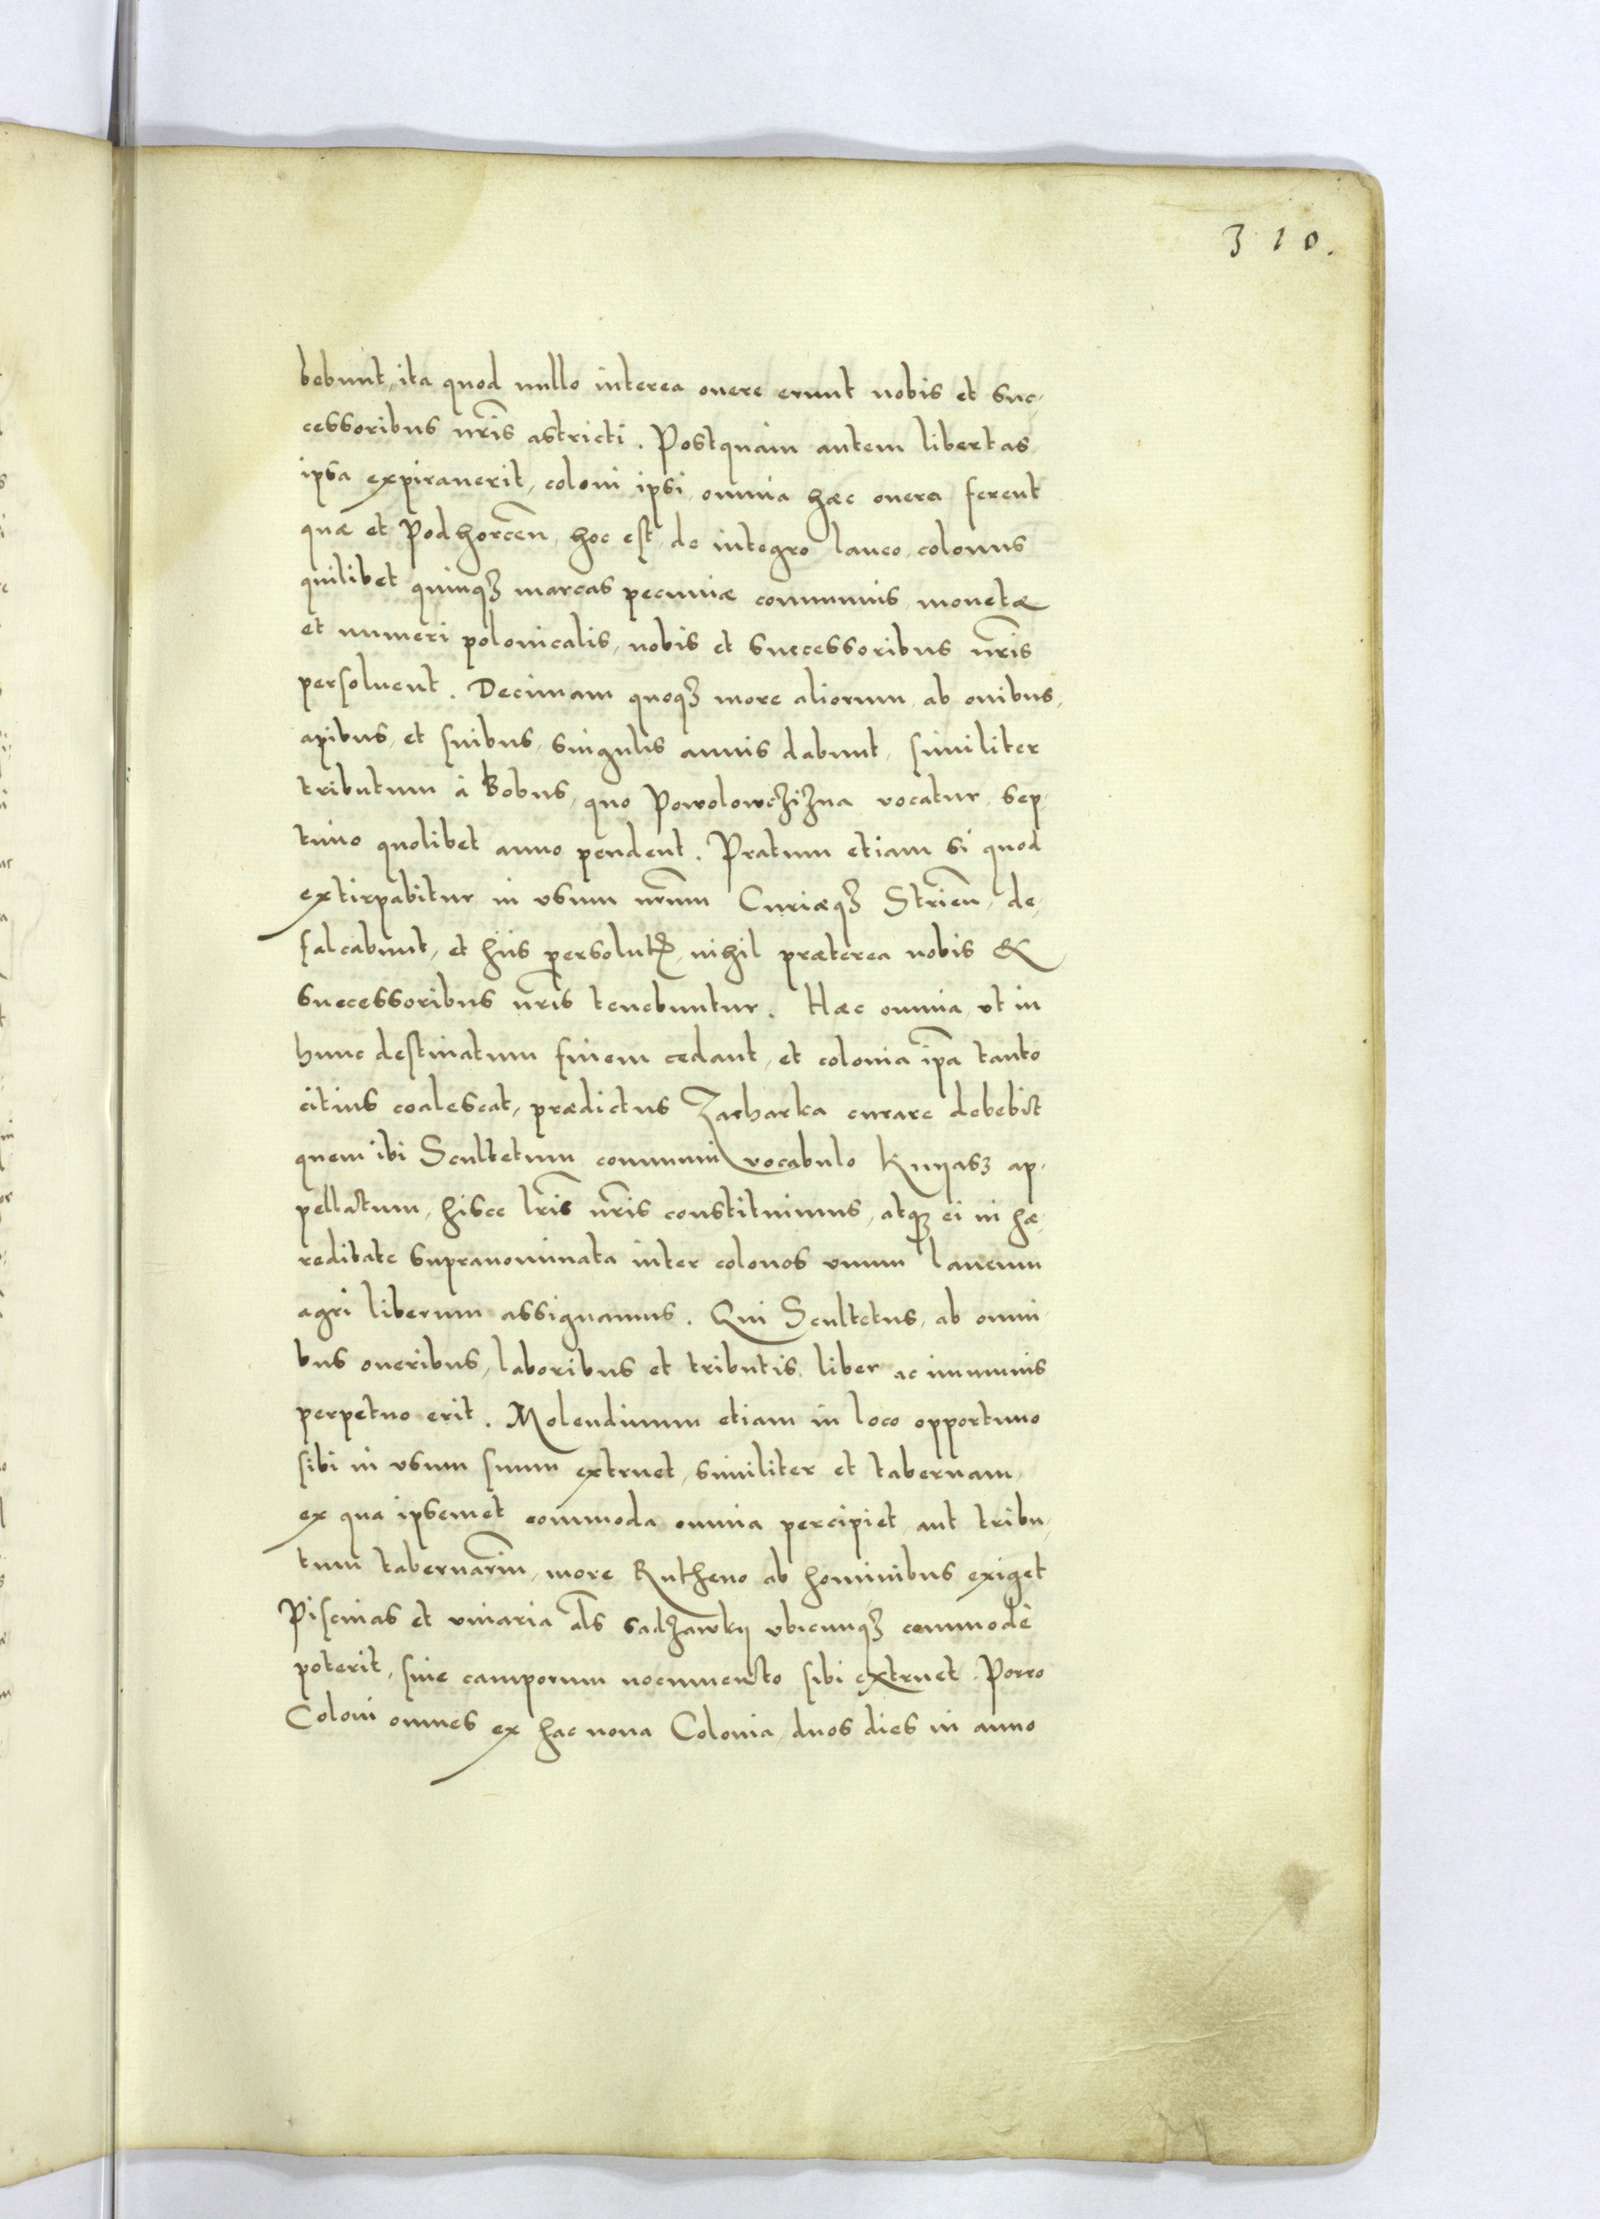 310.
bebunt, ita quod nullo interea onere erunt nobis et suc,
cessoribus nris astricti. Postquam autem libertas
ipsa expirauerit, coloni ipsi omnia hæc onera ferent
quæ et Podhorcen, hoc est, de integro laneo, colonus
quilibet quinqȝ marcas pecuniæ communis monetæ
et numeri polonicalis, nobis et successoribus nris
persoluent. Decimam quoqȝ more aliorum ab ouibus,
apibus, et suibus, singulis annis dabunt, similiter
tributum à bobus, quo Powolowczizna vocatur, sep,
timo quolibet anno pendent. Pratum etiam si quod
extirpabitur in vsum nrum Curiæqȝ Strien, de,
falcabunt, et hiis persolutis, nihil præterea nobis &
successoribus nris tenebuntur. Hæc omnia vt in
hunc destinatum finem cedant, et colonia ipa tanto
citius coalescat, prædictus Zacharka curare debebit
quem ibi Scultetum communi vocabulo Knyasz ap,
pellatum, hisce lris nris constituimus, atqȝ ei in hæ,
reditate supranominata inter colonos vnum laneum
agri liberum assignamus. Qui Scultetus, ab omni,
bus oneribus, laboribus et tributis liber ac immunis
perpetuo erit. Molendinum etiam in loco opportuno
sibi in vsum suum extruet, similiter et tabernam,
ex qua ipsemet commoda omnia percipiet, aut tribu,
tum tabernarium, more Rutheno ab hominibus exiget
Piscinas et viuaria als sadzawky vbicunqȝ commodè
poterit, sine camporum nocumento sibi extruet. Porro
Coloni omnes ex hac noua Colonia, duos dies in anno